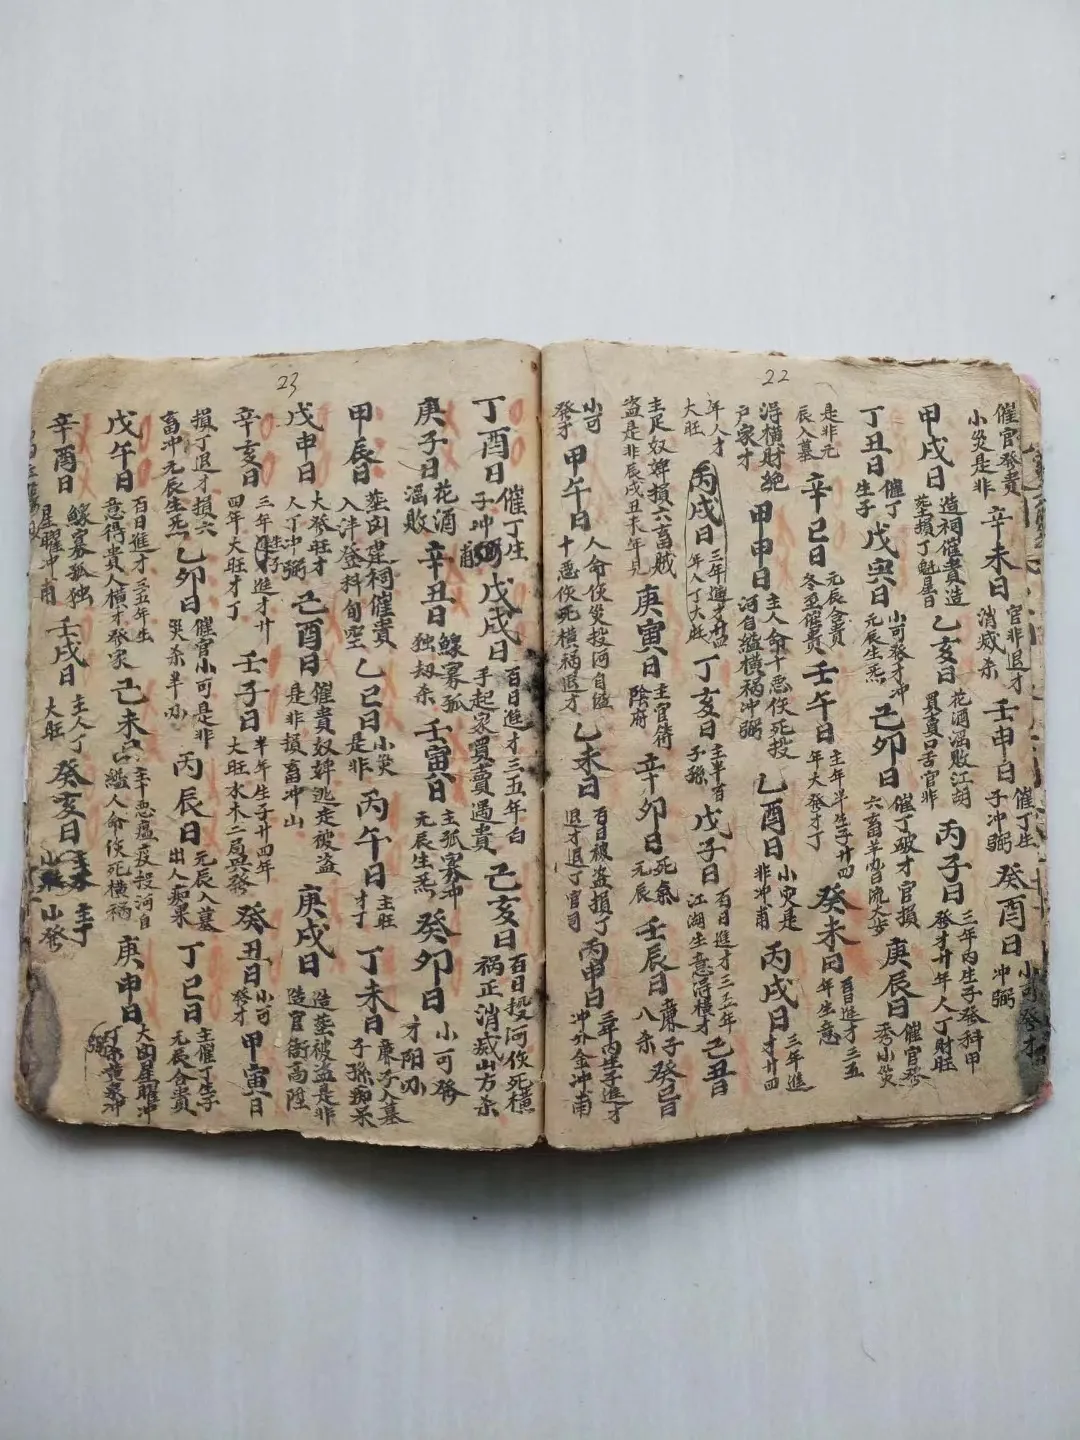 22
催官發貴
小災是非
辛未日
官非退才
消滅杀
壬申日
催丁生
子冲弼
癸酉日
小可發才
冲弼
甲戌日
造祠催貴造
茔損丁魁星日
乙亥日
花酒滛敗江胡
買賣口舌官非
丙子日
三年内生子發科甲
發才廿年人丁財旺
丁丑日
催丁
生子
戊寅日
小可發才冲
元辰生炁
己卯日
催丁破才官損
六畜
庚辰日
催官發
秀小災
是非元
辰入墓
辛巳日
元辰合貴
冬至催貴
壬午日
主年半生子廿四
年大發才丁
癸未日
百日進才三五
年生意
淂横財絶
户家才
甲申日
主人命十恶伙死投
河自縊横祸冲弼
乙酉日
小灾是
非冲甫
丙戌日
三年進
才廿四
年人才
大旺
丙戌日
三年進才廿四
年人丁大旺
丁亥日
子孫
戊子日
百日進才三五年
江湖生意淂横才
己丑日
主足奴婢損六畜贼
盗是非辰戌丑未年見
庚寅日
主官符
陰府
辛卯日
死氣
元辰
壬辰日
廉子癸日
八杀
小可
發才
甲午日
人命伙災投河自縊
十恶伙死横祸退才
乙未日
百日被盗損丁
退才退丁官司
丙申日
三年内生子進才
冲外金冲南
23
丁酉日
催丁生
子冲弼
戊戌日
百日進才三五年白
手起家買賣遇貴
己亥日
百日投河伙死横
祸正消滅山方杀
庚子日
花酒
滛敗
辛丑日
鰥寡孤
独刼杀
壬寅日
主孤寡冲
元辰生炁
癸卯日
小可發
才陽刃
甲辰日
茔則建祠催貴
入泮登科旬空
乙巳日
小災
是非
丙午日
主旺
才丁
丁未日
廉子入墓
子孫痴呆
戊申日
大發旺才
人丁冲弼
己酉日
催貴奴婢逃走被盗
是非損畜冲山
庚戌日
造茔被盗是非
造官衙高陞
辛亥日
三年生子進才廿
四年大旺才丁
壬子日
半年生子廿四年
大旺水木二局與發
癸丑日
小可
發才
甲寅日
損丁退才損六
畜冲元辰生炁
乙卯日
催官小可是非
災杀羊刃
丙辰日
元辰入墓
出人痴呆
丁巳日
主催丁生子
元辰合貴
戊午日
百日進才三五年生
意得貴人横才發家
己未日
主十恶瘟疫投河自
縊人命伙死横祸
庚申日
大凶星曜冲
辛酉日
鰥寡孤独
星曜冲甫
壬戌日
主人丁
大旺
癸亥日
小發